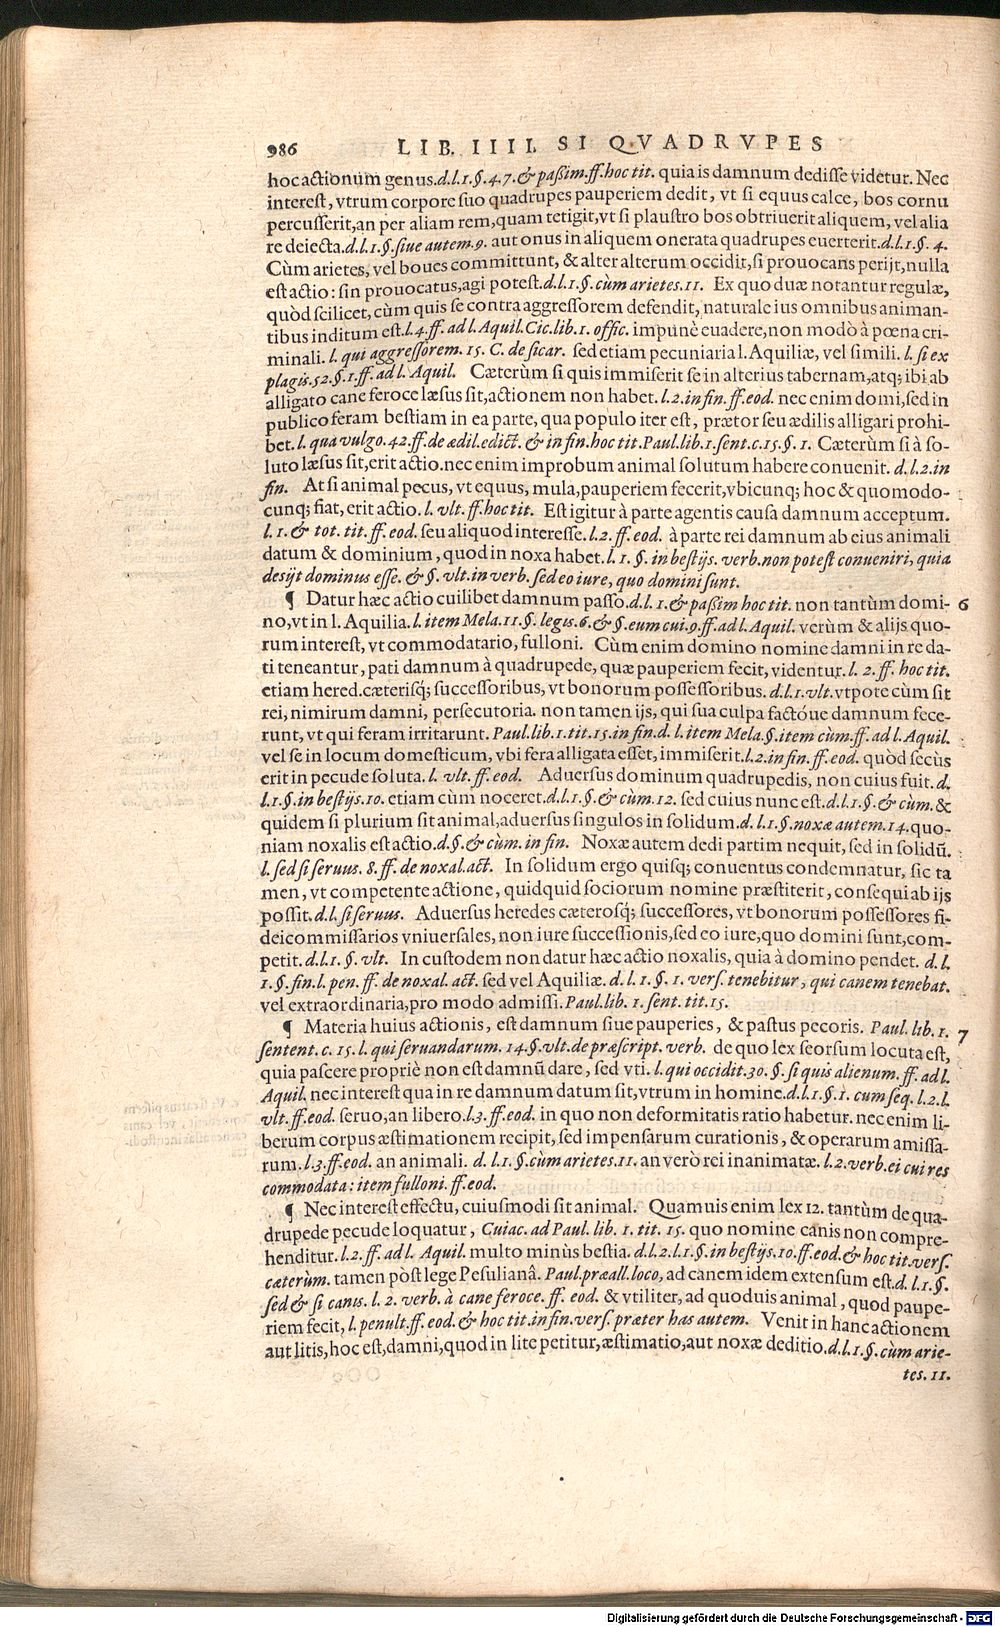 986 LIB. IIII. SI QVADRVPES
hoc actionum genus.d.l.1.§.4.7.& paßim.ff.hoc tit. quia is damnum dedisse videtur. Nec
interest, vtrum corpore suo quadrupes pauperiem dedit, vt si equus calce, bos cornu
percusserit, an per aliam rem, quam tetigit, vt si plaustro bos obtriuerit aliquem, vel alia
re deiecta.d.l.1.§.siue autem.9. aut onus in aliquem onerata quadrupes euerterit.d.l.1.§.4.
Cùm arietes, vel boues committunt, & alter alterum occidit, si prouocans perijt, nulla
est actio: sin prouocatus, agi potest.d.l.1.§.cùm arietes.11. Ex quo duæ notantur regulæ,
quòd scilicet, cùm quis se contra aggressorem defendit, naturale ius omnibus animan-
tibus inditum est.l.4.ff.ad l.Aquil.Cic.lib.1.offic. impunè euadere, non modò à pœna cri-
minali. l. qui aggressorem. 15. C. de sicar. sed etiam pecuniaria l. Aquiliæ, vel simili. l. si ex
plagis.52.§.1.ff.ad l. Aquil. Cæterùm si quis immiserit se in alterius tabernam, atq; ibi ab
alligato cane feroce læsus sit, actionem non habet. l.2.in fin.ff.eod. nec enim domi, sed in
publico feram bestiam in ea parte, qua populo iter est, prætor seu ædilis alligari prohi-
bet.l. qua vulgo.42.ff.de ædil.edict. & in fin.hoc tit.Paul.lib.1.sent.c.15.§.1. Cæterùm si à so-
luto læsus sit, erit actio. nec enim improbum animal solutum habere conuenit. d.l.2.in
fin. At si animal pecus, vt equus, mula, pauperiem fecerit, vbicunq; hoc & quomodo-
cunq; fiat, erit actio. l. vlt.ff.hoc tit. Est igitur à parte agentis causa damnum acceptum.
l.1.& tot. tit.ff.eod. seu aliquod interesse.l.2.ff.eod. à parte rei damnum ab eius animali
datum & dominium, quod in noxa habet.l.1.§. in bestijs. verb.non potest conueniri, quia
desijt dominus esse. & §. vlt.in verb. sed eo iure, quo domini sunt.
¶ Datur hæc actio cuilibet damnum passo.d.l.1.& paßim hoc tit. non tantùm domi- 6
no, vt in l. Aquilia.l. item Mela.11.§. legis.6.& §.eum cui.9.ff.ad l. Aquil. verùm & alijs quo-
rum interest, vt commodatario, fulloni. Cùm enim domino nomine damni in re da-
ti teneantur, pati damnum à quadrupede, quæ pauperiem fecit, videntur. l. 2.ff. hoc tit.
etiam hered.cæterisq́; successoribus, vt bonorum possessoribus. d.l.1.vlt. vtpote cùm sit
rei, nimirum damni, persecutoria. non tamen ijs, qui sua culpa factóue damnum fece-
runt, vt qui feram irritarunt. Paul.lib.1.tit.15.in fin.d. l. item Mela.§.item cùm.ff. ad l. Aquil.
vel se in locum domesticum, vbi fera alligata esset, immiserit.l.2.in fin.ff.eod. quòd secùs
erit in pecude soluta. l. vlt.ff.eod. Aduersus dominum quadrupedis, non cuius fuit. d.
l.1.§.in bestijs.10. etiam cùm noceret.d.l.1.§.& cùm.12. sed cuius nunc est.d.l.1.§.& cùm.&
quidem si plurium sit animal, aduersus singulos in solidum.d. l.1.§.noxæ autem.14.quo-
niam noxalis est actio.d.§.& cùm. in fin. Noxæ autem dedi partim nequit, sed in solidũ.
l. sed si seruus. 8.ff. de noxal.act. In solidum ergo quisq; conuentus condemnatur, sic ta
men, vt competente actione, quidquid sociorum nomine præstiterit, consequi ab ijs
possit.d.l. si seruus. Aduersus heredes cæterosq́; successores, vt bonorum possessores fi-
deicommissarios vniuersales, non iure successionis, sed eo iure, quo domini sunt, com-
petit. d.l.1.§. vlt. In custodem non datur hæc actio noxalis, quia à domino pendet. d. l.
1.§.fin.l. pen.ff. de noxal. act. sed vel Aquiliæ. d. l. 1. §. 1. vers. tenebitur, qui canem tenebat.
vel extraordinaria, pro modo admissi. Paul.lib. 1. sent. tit.15.
¶ Materia huius actionis, est damnum siue pauperies, & pastus pecoris. Paul. lib. 1. 7
sentent. c. 15. l. qui seruandarum. 14.§.vlt.de præscript. verb. de quo lex seorsum locuta est,
quia pascere propriè non est damnũ dare, sed vti. l. qui occidit.30. §. si quis alienum. ff. ad l.
Aquil. nec interest qua in re damnum datum sit, vtrum in homine.d.l.1.§.1. cum seq. l.2.l.
vlt.ff.eod. seruo, an libero.l.3.ff.eod. in quo non deformitatis ratio habetur. nec enim li-
berum corpus æstimationem recipit, sed impensarum curationis, & operarum amissa-
rum.l.3.ff.eod. an animali. d. l.1.§.cùm arietes.11. an verò rei inanimatæ. l.2.verb.ei cui res
commodata: item fulloni. ff.eod.
¶ Nec interest effectu, cuiusmodi sit animal. Quamuis enim lex 12. tantùm de qua-
drupede pecude loquatur, Cuiac. ad Paul. lib. 1. tit. 15. quo nomine canis non compre-
henditur. l.2.ff. ad l. Aquil. multo minùs bestia. d.l.2.l.1.§.in bestijs.10.ff.eod.& hoc tit.vers.
cæterùm. tamen pòst lege Pesulianâ. Paul.præall.loco, ad canem idem extensum est.d.l.1.§.
sed & si canis. l. 2. verb. à cane feroce. ff. eod. & vtiliter, ad quoduis animal, quod paupe-
riem fecit, l. penult.ff. eod. & hoc tit.in fin.vers. præter has autem. Venit in hanc actionem
aut litis, hoc est, damni, quod in lite petitur, æstimatio, aut noxæ deditio.d.l.1.§.cùm arie-
tes. 11.
Digitalisierung gefördert durch die Deutsche Forschungsgemeinschaft - DFG